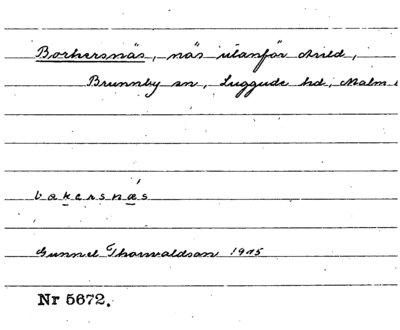 Borkersnäs, näs utanför Arild,
Brunnby sn, Luggude hd, Malm
bakersnæs
Gunnel Thorwaldson 1915
Nr 5672.